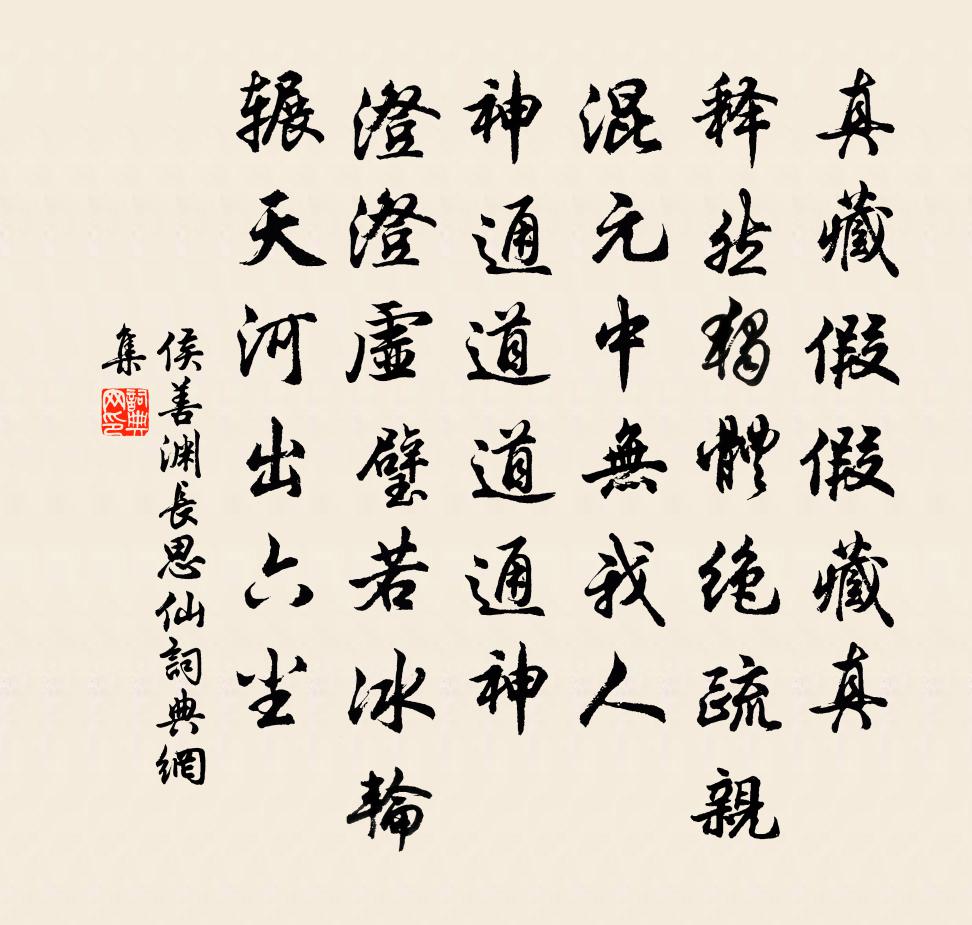 真藏假假藏真
释然独體绝疏親
混元中無我人
神通道道通神
澄澄虛璧若冰輪
辗天河出六尘
侯善渊長思仙詞典網
集
詞典
网印